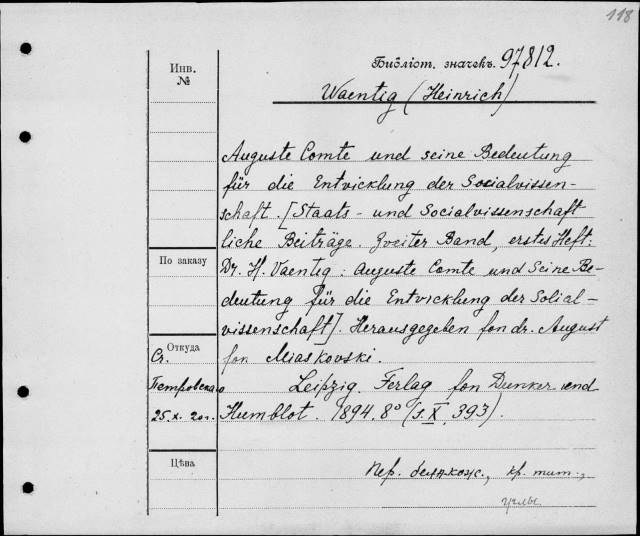 118
Библіот. значекъ. 97812.
Инв.
№
Waentig (Heinrich)
Auguste Comte und seine Bedeutung
für die Entvicklung der Socialvissen-
schaft. [Staats- und Socialvissenschaft
liche Beiträge. Zveiter Band, erstes Heft:
По заказу
Dr. H. Vaentig: Auguste Comte und Seine Be-
deutung für die Entvicklung der Solial-
vissenschaft]. Herausgegeben fon dr. August
Откуда
Ст. fon Miaskovski.
Петровскаго Leipzig. Ferlag fon Dunker und
25.X.20г. Humblot. 1894. 8° (s. X, 393).
Цѣна
Пер. бел. кож., кр. тит.,